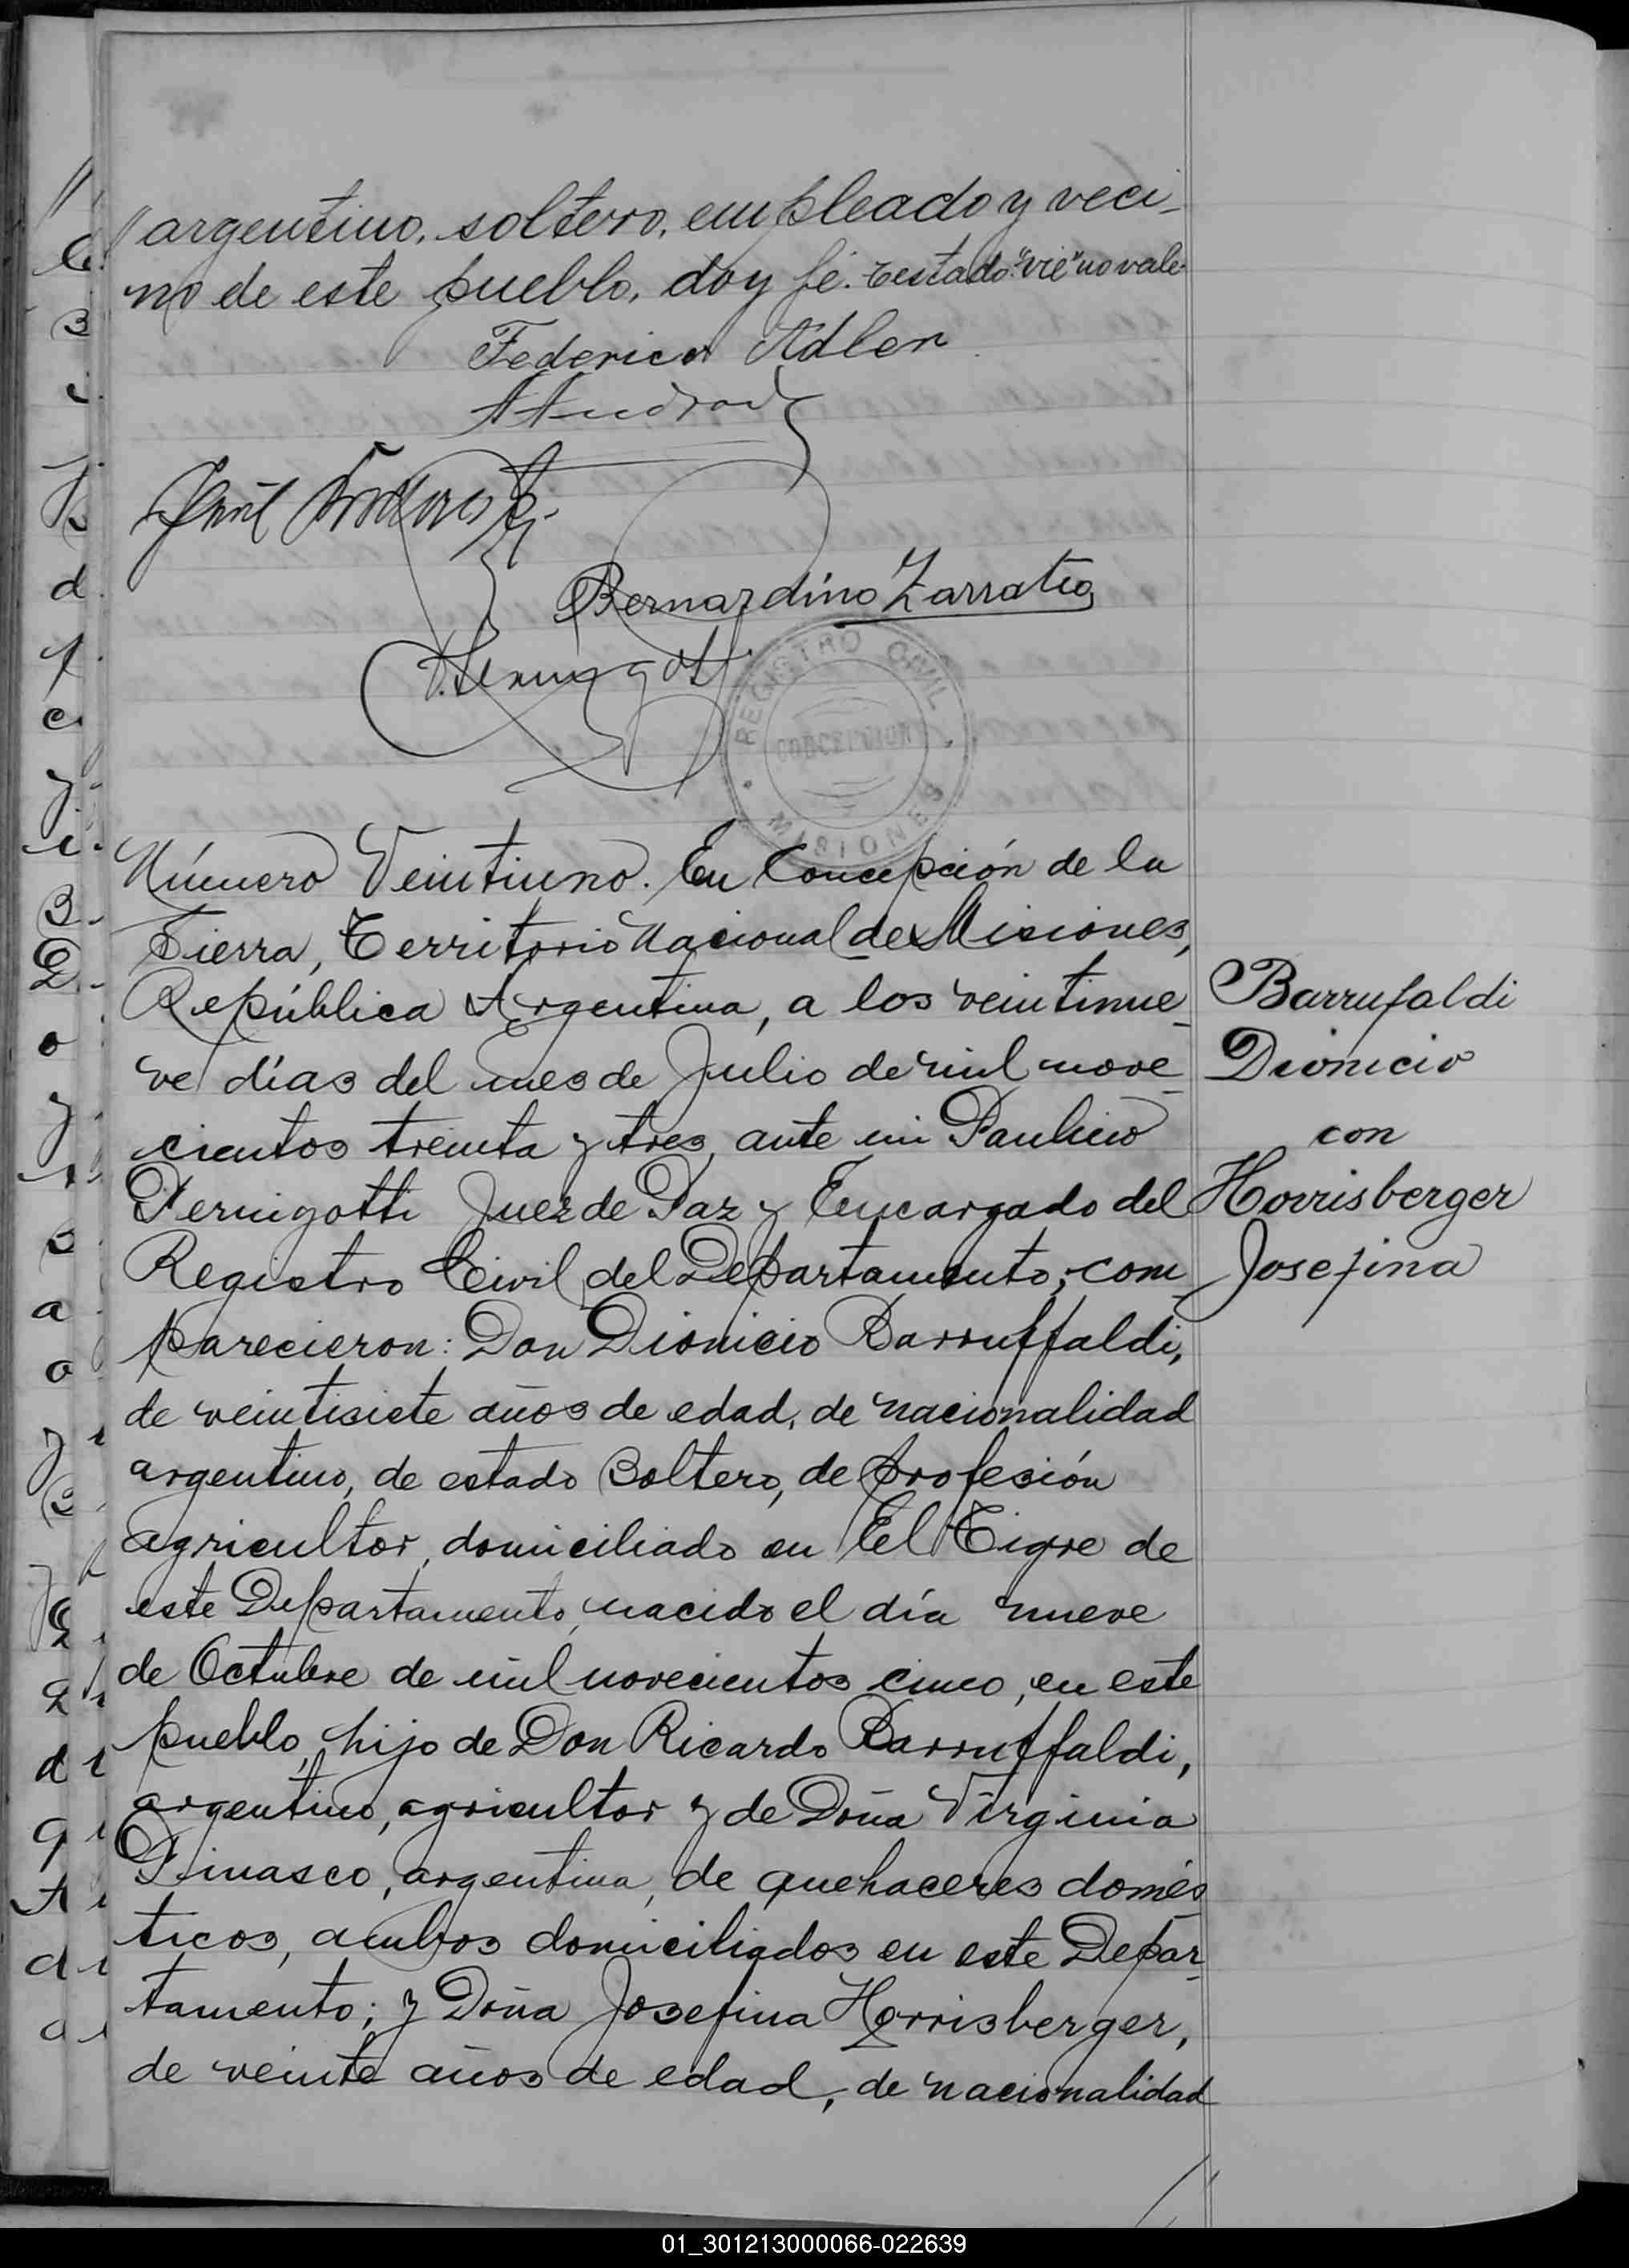 argentino, soltero, empleado y veci-
no de este pueblo, doy fé. Testado "vie" no vale
Federico Adler
Bernardino Zarratea
REGISTRO CIVIL
CONCEPCION
MISIONES
Número Veintiuno. En Concepción de la
Sierra, Territorio Nacional de Misiones,
República Argentina, a los veintinue-
ve días del mes de Julio de mil nove-
cientos treinta y tres, ante mi Paulino
Pernigotti Juez de Paz y Encargado del
Registro Civil del Departamento; com-
parecieron: Don Dionicio Barruffaldi,
de veintisiete años de edad, de nacionalidad
argentino, de estado soltero, de profesión
agricultor, domiciliado en El Tigre de
este Departamento, nacido el día nueve
de Octubre de mil novecientos cinco, en este
pueblo, hijo de Don Ricardo Barruffaldi,
argentino, agricultor y de Doña Virginia
Pinasco, argentina, de quehaceres domés-
ticos, ambos domiciliados en este Depar-
tamento; y Doña Josefina Horrisberger,
de veinte años de edad, de nacionalidad
Barrufaldi
Dionicio
con
Horrisberger
Josefina
01_301213000066-022639